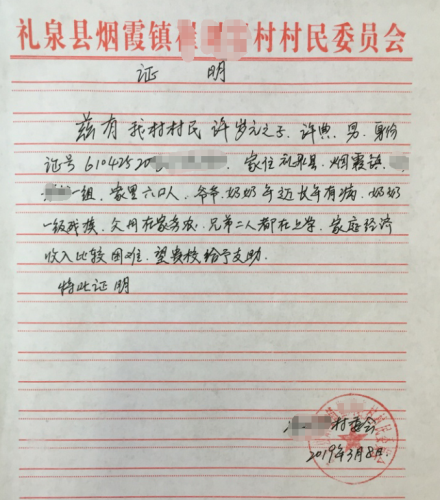 礼泉县烟霞镇 村村民委员会
证 明
兹有我村村民许岁元之子,许典,男,身份
证号61042520 ,家住礼泉县,烟霞镇,
一组,家里六口人,爷爷,奶奶年迈长年有病,奶奶
一级残疾,父母在家务农,兄弟二人都在上学,家庭经济
收入比较困难,望贵校给予支助.
特此证明
村委会
2019年3月8日